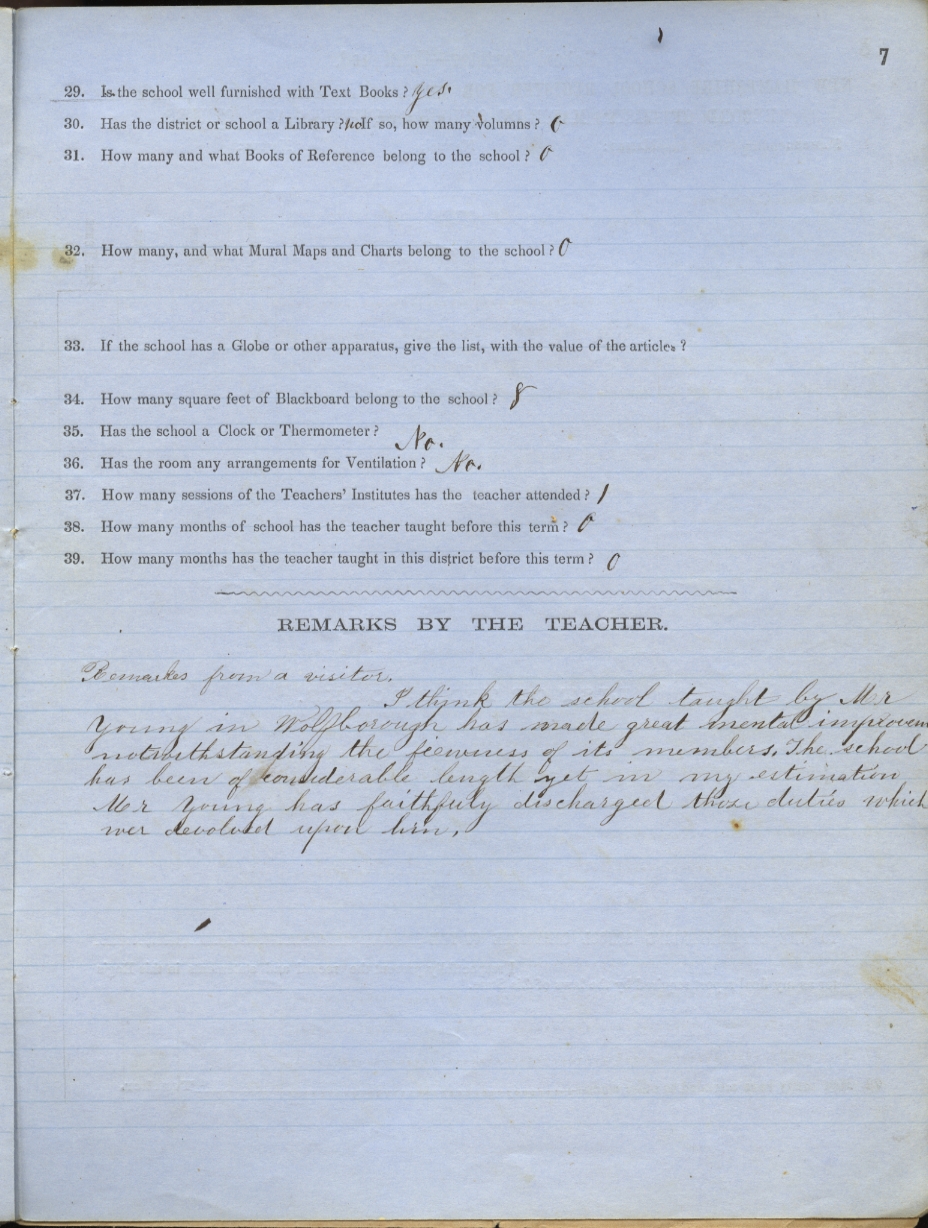 7
29. Is the school well furnished with Text Books? Yes.
30. Has the district or school a Library? No If so, how many volumns? 0
31. How many and what Books of Reference belong to the school? 0
32. How many, and what Mural Maps and Charts belong to the school? 0
33. If the school has a Globe or other apparatus, give the list, with the value of the articles?
34. How many square feet of Blackboard belong to the school? 8
35. Has the school a Clock or Thermometer? No.
36. Has the room any arrangements for Ventilation? No.
37. How many sessions of the Teachers' Institutes has the teacher attended? 1
38. How many months of school has the teacher taught before this term? 0
39. How many months has the teacher taught in this district before this term? 0
REMARKS BY THE TEACHER.
Remarks from a visitor.
I think the school taught by Mr
Young in Wolfborough has made great mental improvem
notwithstanding the fewness of its members. The school
has been of considerable length yet in my estimation
Mr Young has faithfuly discharged those duties which
wer devolved upon him.